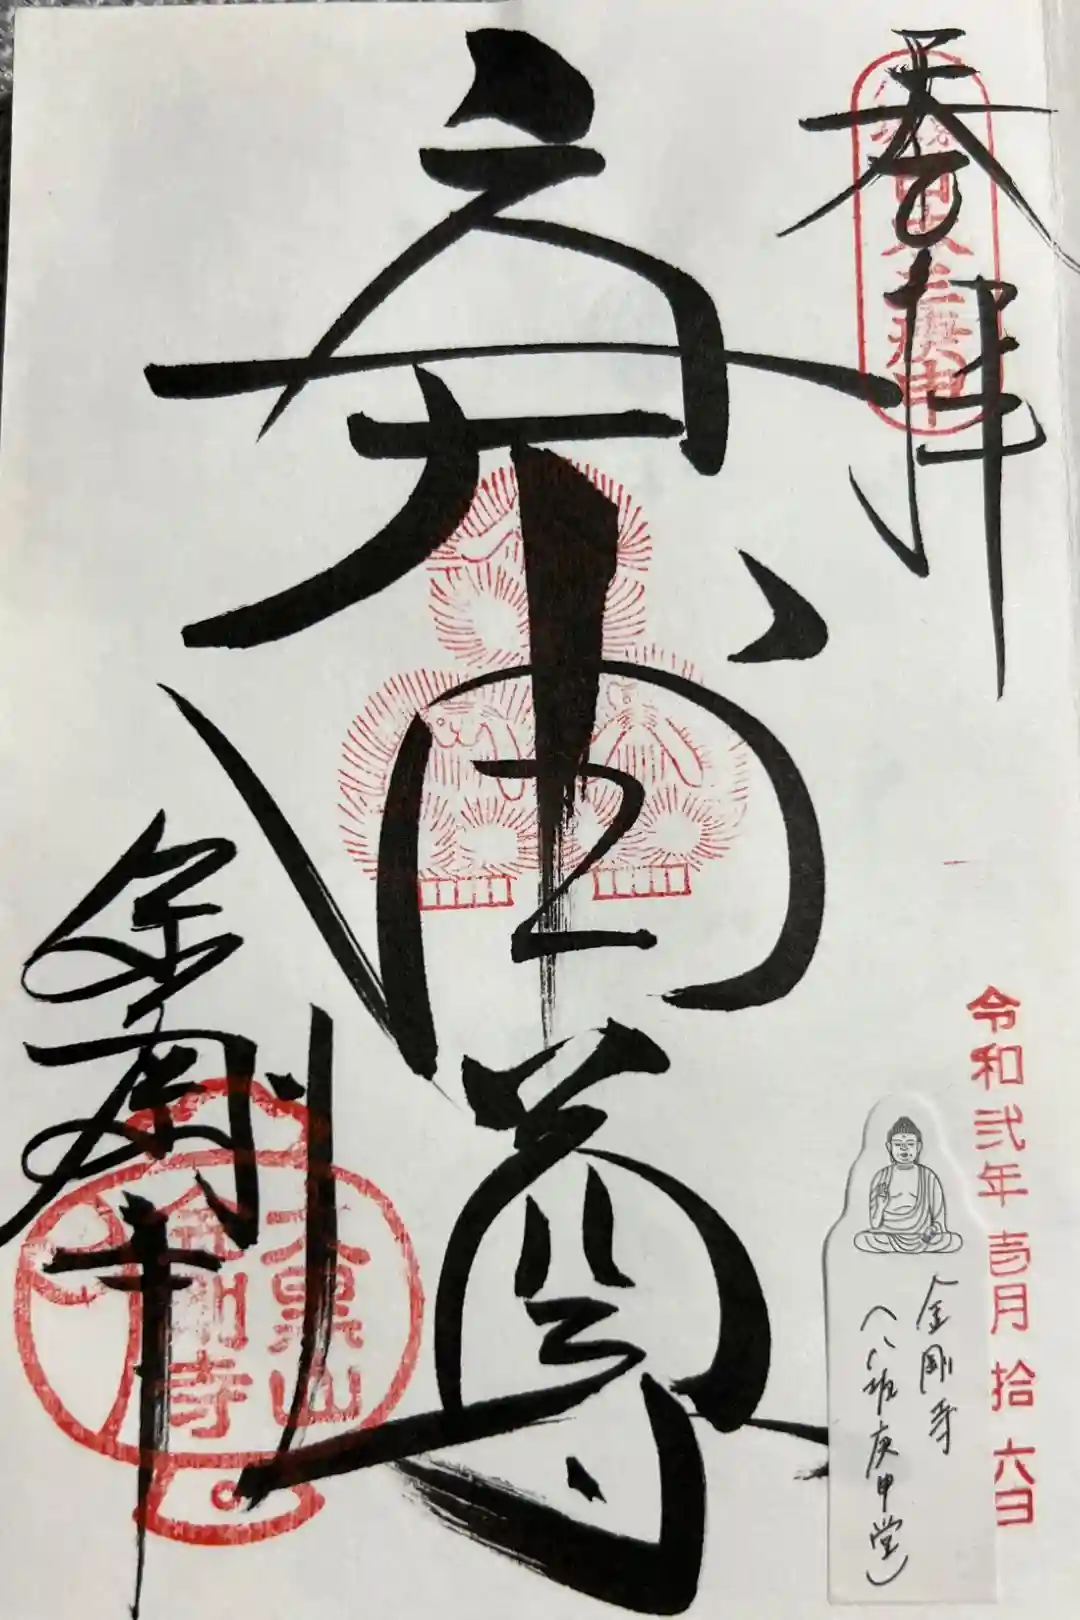 奉拝
庚申尊
金剛寺
大黒山
金剛寺
令和弐年壱月拾六日
金剛寺
(八坂庚申堂)